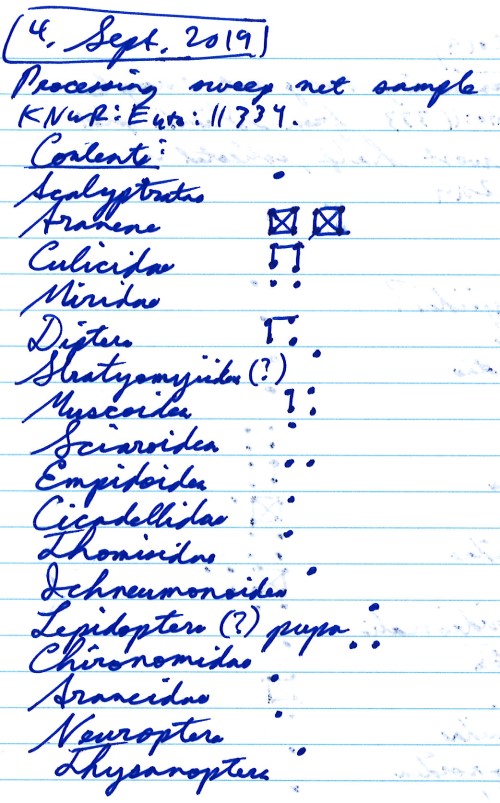 4. Sept. 2019
Processing sweep net sample
KNWR:Ento:11334.
Contents:
Acalyptratae
Araneae
Culicidae
Miridae
Diptera
Stratyomyiidae (?)
Muscoidea
Sciaroidea
Empidoidea
Cicadellidae
Thomisidae
Ichneumonoidea
Lepidoptera (?) pupa
Chironomidae
Araneidae
Neuroptera
Thysanoptera